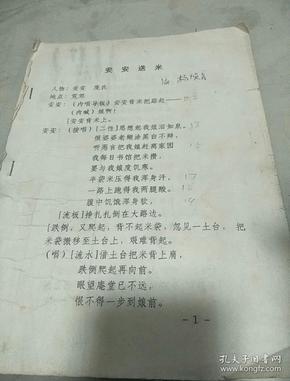 安安送米
人物：安安 庞氏
地点：荒郊
安安：（内唱导板）安安背米把路起——
（内喊）娘啊！
［安安背米上。
安安：（接唱）［二性］思想起我娘泪如泉，
恨婆婆老糊涂黑白不辩，
听谗言把我娘赶离家园
我每日书馆把米攒，
要与我娘度饥寒。
半袋米压得我浑身汗，
一路上跑得我两腿酸。
腹中饥饿浑身软，
［流板］挣扎扎倒在大路边。
［跌倒，又爬起，背不起米袋，忽见一土台，把
米袋搬移至土台上，艰难背起。
（唱）［流水］借土台把米背上肩，
跌倒爬起再向前。
眼望庵堂已不远，
恨不得一步到娘前。
-1-
孔夫子旧书网